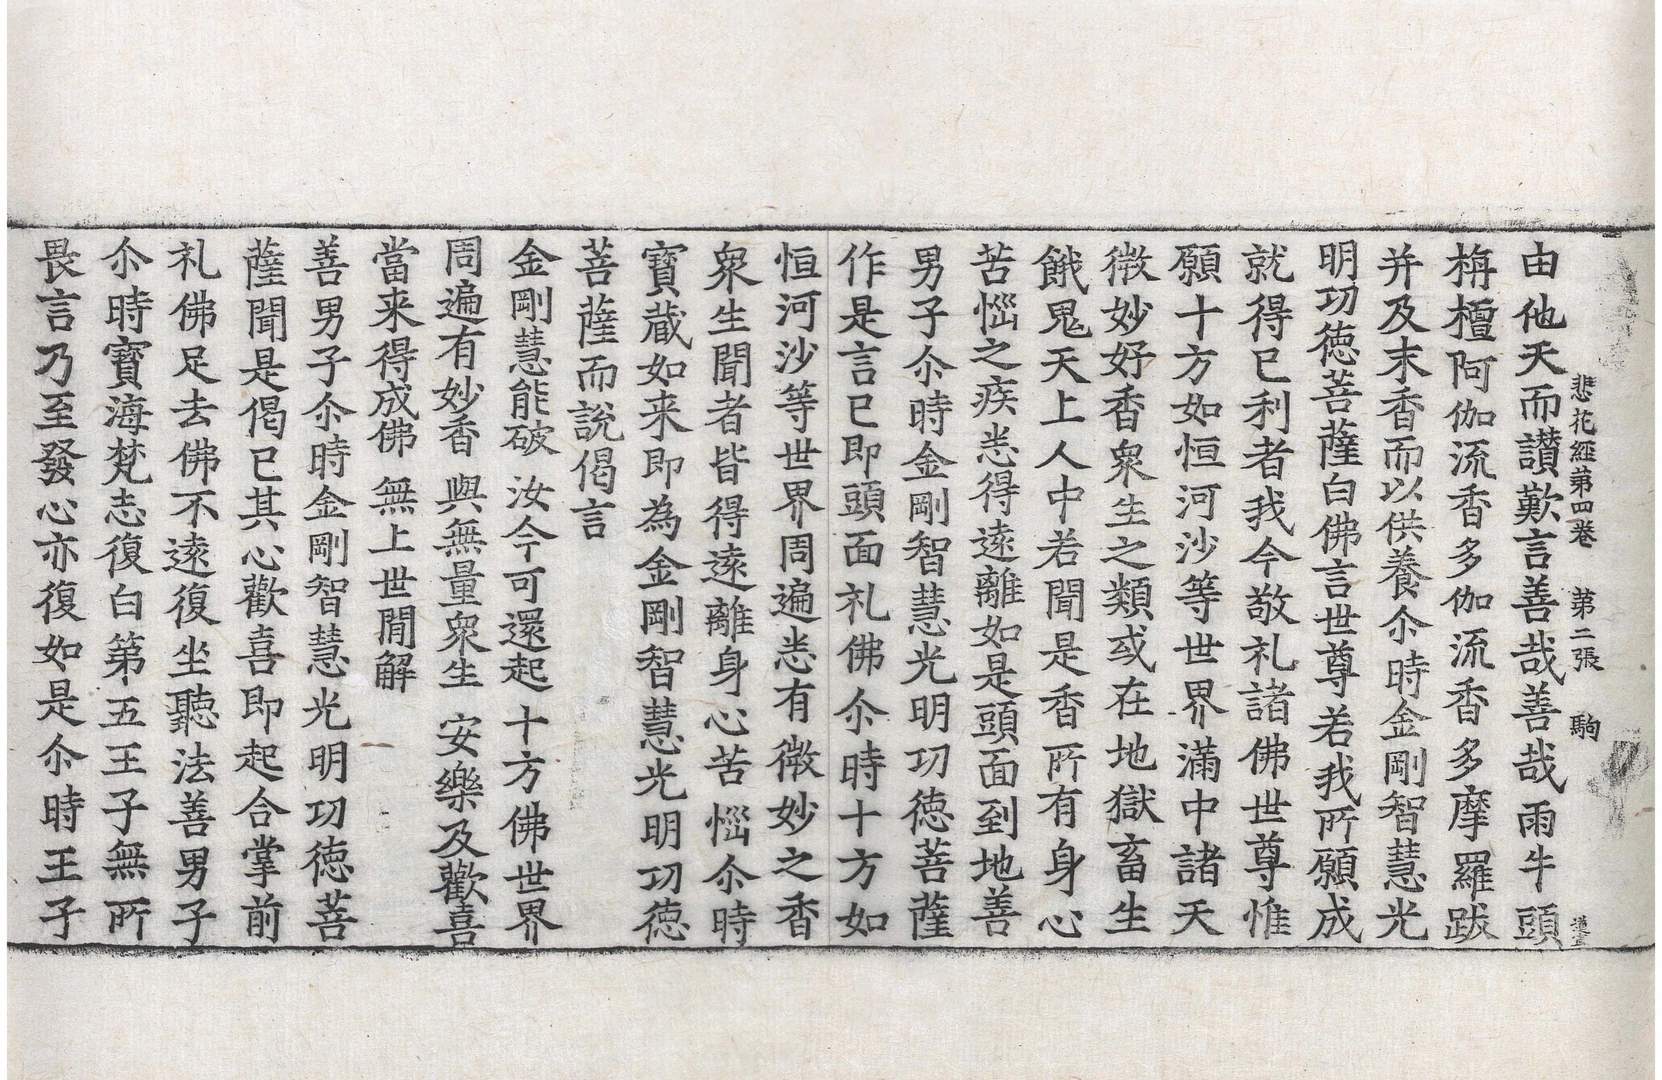 悲花經第四卷　第二張　駒
由他天而讃歎言善哉善哉雨牛頭
栴檀阿伽流香多伽流香多摩羅跋
并及末香而以供養尒時金剛智慧光
明功徳菩薩白佛言世尊若我所願成
就得已利者我今敬礼諸佛世尊惟
願十方如恒河沙等世界滿中諸天
微妙好香衆生之類或在地獄畜生
餓鬼天上人中若聞是香所有身心
苦惱之疾悉得遠離如是頭面到地善
男子尒時金剛智慧光明功徳菩薩
作是言已即頭面礼佛尒時十方如
恒河沙等世界周遍悉有微妙之香
衆生聞者皆得遠離身心苦惱尒時
寶蔵如来即為金剛智慧光明功徳
菩薩而說偈言
金剛慧能破　汝今可還起　十方佛世界
周遍有妙香　與無量衆生　安樂及歡喜
當来得成佛　無上世間解
善男子尒時金剛智慧光明功徳菩
薩聞是偈已其心歡喜即起合掌前
礼佛足去佛不遠復坐聽法善男子
尒時寶海梵志復白第五王子無所
畏言乃至發心亦復如是尒時王子